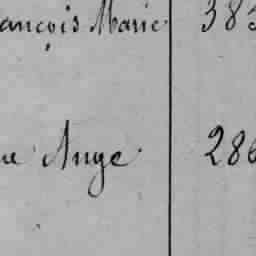 ançois Marie 383
ue Ange 286